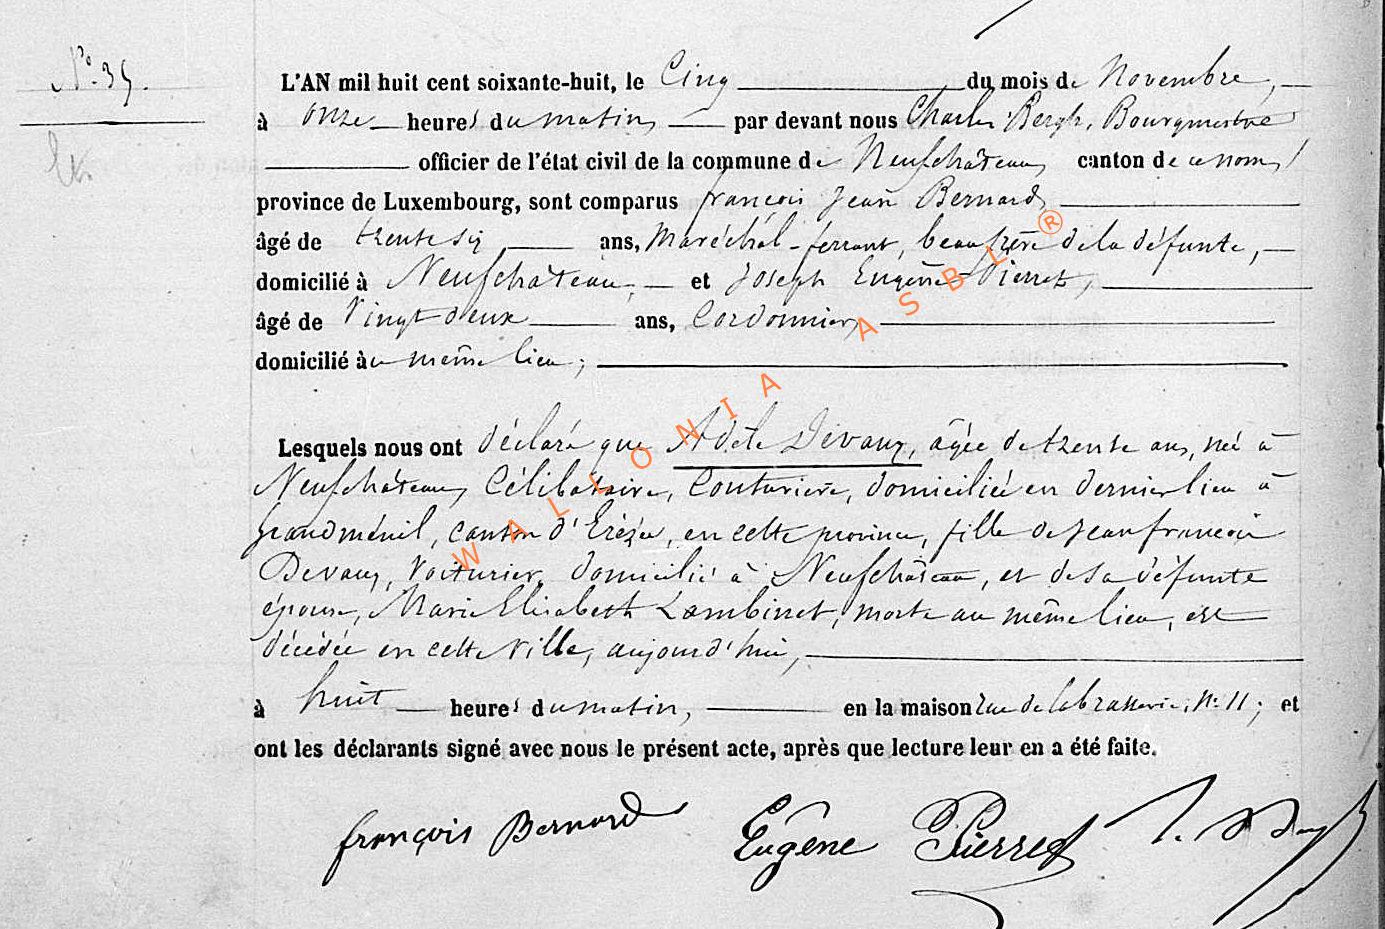 N° 35.
L'AN mil huit cent soixante-huit, le Cinq du mois de Novembre,
à onze heures du matin, par devant nous Charles Bergh, Bourgmestre
officier de l'état civil de la commune de Neufchâteau, canton de ce nom,
province de Luxembourg, sont comparus françois Jean Bernard,
âgé de trente six, ans, Maréchal-ferrant, beau frère de la défunte,
domicilié à Neufchâteau, et Joseph Eugène Pierret,
âgé de Vingt deux ans, Cordonnier,
domicilié au même lieu;
Lesquels nous ont déclaré que Adèle Devaux, âgée de trente ans, née à
Neufchâteau, Célibataire, Couturière, domiciliée en dernier lieu à
grandménil, canton d'Erézée, en cette province, fille de Jean françois
Devaux, Voiturier, domicilié à Neufchâteau, et de sa défunte
épouse, Marie Elisabeth Lambinet, morte au même lieu, est
décédée en cette Ville, aujourd'hui,
à huit heures du matin, en la maison rue de la brasserie, N° 11; et
ont les déclarants signé avec nous le présent acte, après que lecture leur en a été faite.
françois Bernard Eugène Pierret
WALLONIA ASBL ®